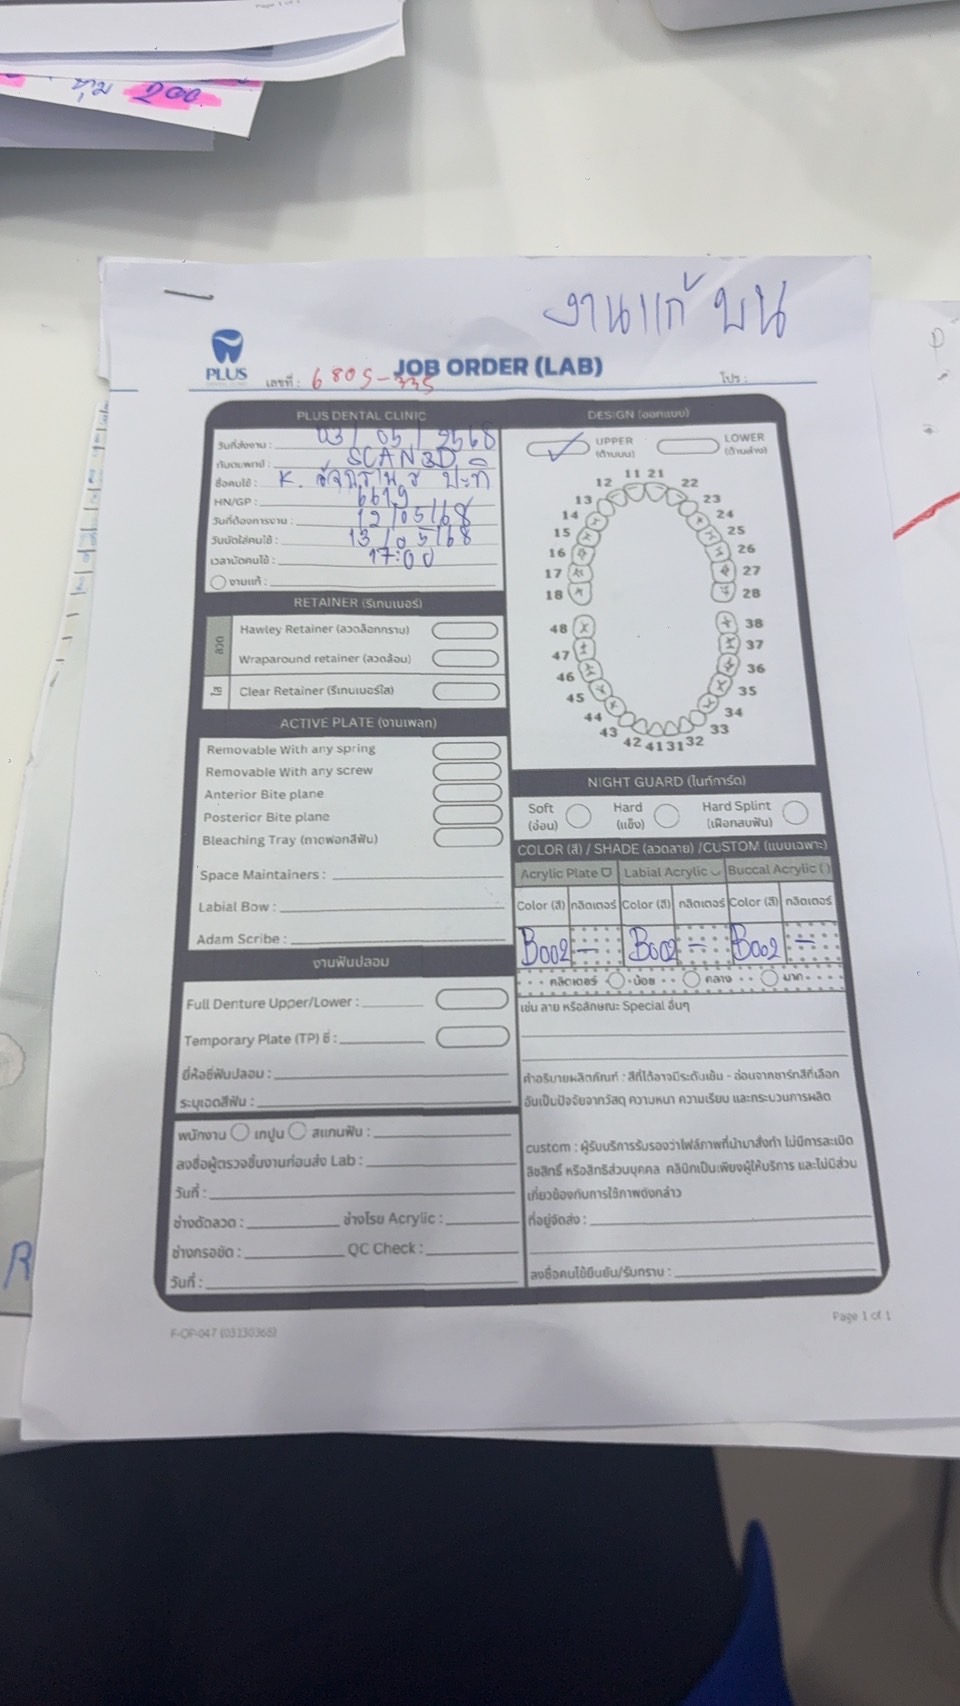 200
งานแก้ บน
PLUS
JOB ORDER (LAB)
เลขที่ : 6805-335
โปร :
PLUS DENTAL CLINIC
วันที่ส่งงาน : 03 / 05 / 2568
ทันตแพทย์ : SCAN3D
ชื่อคนไข้ : K.
HN/GP : 6619
วันที่ต้องการงาน : 12/05/68
วันนัดใส่คนไข้ : 13/05/68
เวลานัดคนไข้ : 17:00
งานแก้ :
RETAINER (รีเทนเนอร์)
ลวด
Hawley Retainer (ลวดล็อกกราม)
Wraparound retainer (ลวดล้อม)
ใส
Clear Retainer (รีเทนเนอร์ใส)
ACTIVE PLATE (งานเพลท)
Removable With any spring
Removable With any screw
Anterior Bite plane
Posterior Bite plane
Bleaching Tray (ถาดฟอกสีฟัน)
Space Maintainers :
Labial Bow :
Adam Scribe :
งานฟันปลอม
Full Denture Upper/Lower :
Temporary Plate (TP) ซี่ :
ยี่ห้อซี่ฟันปลอม :
ระบุเฉดสีฟัน :
พนักงาน เทปูน สแกนฟัน :
ลงชื่อผู้ตรวจชิ้นงานก่อนส่ง Lab :
วันที่ :
ช่างดัดลวด : ช่างโรย Acrylic :
ช่างกรอขัด : QC Check :
วันที่ :
DESIGN (ออกแบบ)
UPPER (ด้านบน)
LOWER (ด้านล่าง)
11 21
12 22
13 23
14 24
15 25
16 26
17 27
18 28
48 38
47 37
46 36
45 35
44 34
43 33
42 41 31 32
NIGHT GUARD (ไนท์การ์ด)
Soft (อ่อน)
Hard (แข็ง)
Hard Splint (เฝือกสบฟัน)
COLOR (สี) / SHADE (ลวดลาย) /CUSTOM (แบบเฉพาะ)
Acrylic Plate Labial Acrylic Buccal Acrylic ( )
Color (สี) กลิตเตอร์ Color (สี) กลิตเตอร์ Color (สี) กลิตเตอร์
B002 - B002 - B002 -
กลิตเตอร์ น้อย กลาง มาก
เช่น ลาย หรือลักษณะ Special อื่นๆ
คำอธิบายผลิตภัณฑ์ : สีที่ได้อาจมีระดับเข้ม - อ่อนจากชาร์ทสีที่เลือก
อันเป็นปัจจัยจากวัสดุ ความหนา ความเรียบ และกระบวนการผลิต
custom : ผู้รับบริการรับรองว่าไฟล์ภาพที่นำมาสั่งทำ ไม่มีการละเมิด
ลิขสิทธิ์ หรือสิทธิส่วนบุคคล คลินิกเป็นเพียงผู้ให้บริการ และไม่มีส่วน
เกี่ยวข้องกับการใช้ภาพดังกล่าว
ที่อยู่จัดส่ง :
ลงชื่อคนไข้ยืนยัน/รับทราบ :
F-OP-047 (03230368)
Page 1 of 1